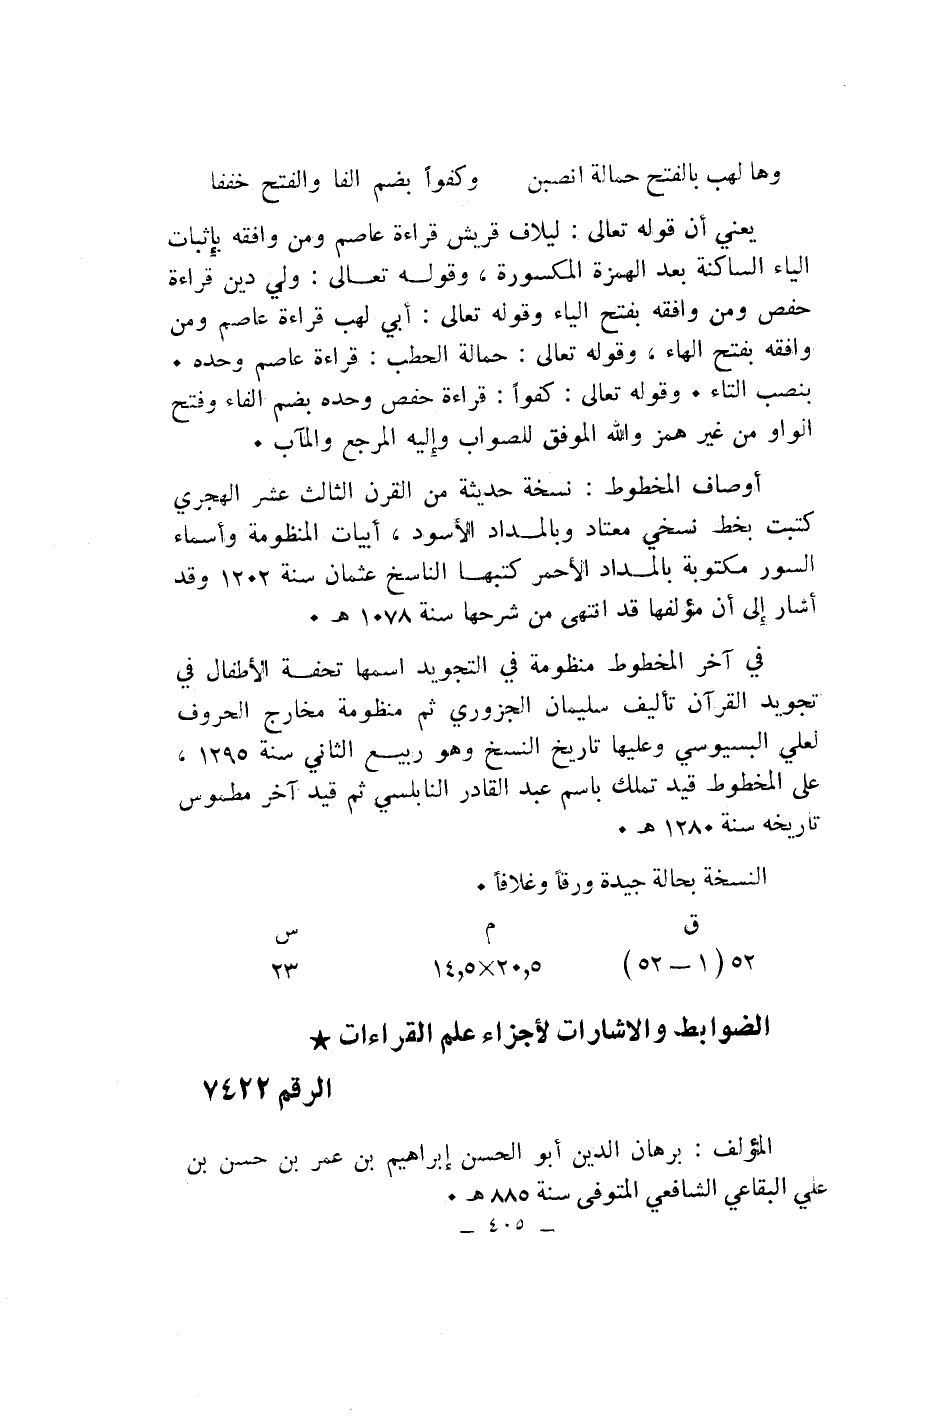 وها لهب بالفتح حمالة انصبن وكفواً بضم الفا والفتح خففا
يعني أن قوله تعالى : ليلاف قريش قراءة عاصم ومن وافقه بإثبات
الياء الساكنة بعد الهمزة المكسورة ، وقوله تعالى : ولي دين قراءة
حفص ومن وافقه بفتح الياء وقوله تعالى : أبي لهب قراءة عاصم ومن
وافقه بفتح الهاء ، وقوله تعالى : حمالة الحطب : قراءة عاصم وحده .
بنصب التاء . وقوله تعالى : كفواً : قراءة حفص وحده بضم الفاء وفتح
الواو من غير همز والله الموفق للصواب وإليه المرجع والمآب .
أوصاف المخطوط : نسخة حديثة من القرن الثالث عشر الهجري
كتبت بخط نسخي معتاد وبالمداد الأسود ، أبيات المنظومة وأسماء
السور مكتوبة بالمداد الأحمر كتبها الناسخ عثمان سنة ١٢٠٢ وقد
أشار إلى أن مؤلفها قد انتهى من شرحها سنة ١٠٧٨ هـ .
في آخر المخطوط منظومة في التجويد اسمها تحفة الأطفال في
تجويد القرآن تأليف سليمان الجزوري ثم منظومة مخارج الحروف
لعلي البسيوسي وعليها تاريخ النسخ وهو ربيع الثاني سنة ١٢٩٥ ،
على المخطوط قيد تملك باسم عبد القادر النابلسي ثم قيد آخر مطموس
تاريخه سنة ١٢٨٠ هـ .
النسخة بحالة جيدة ورقاً وغلافاً .
ق م س
٥٢ (١ – ٥٢) ٢٠,٥×١٤,٥ ٢٣
الضوابط والاشارات لأجزاء علم القراءات ★
الرقم ٧٤٢٢
المؤلف : برهان الدين أبو الحسن إبراهيم بن عمر بن حسن بن
علي البقاعي الشافعي المتوفى سنة ٨٨٥ هـ .
– ٤٠٥ –